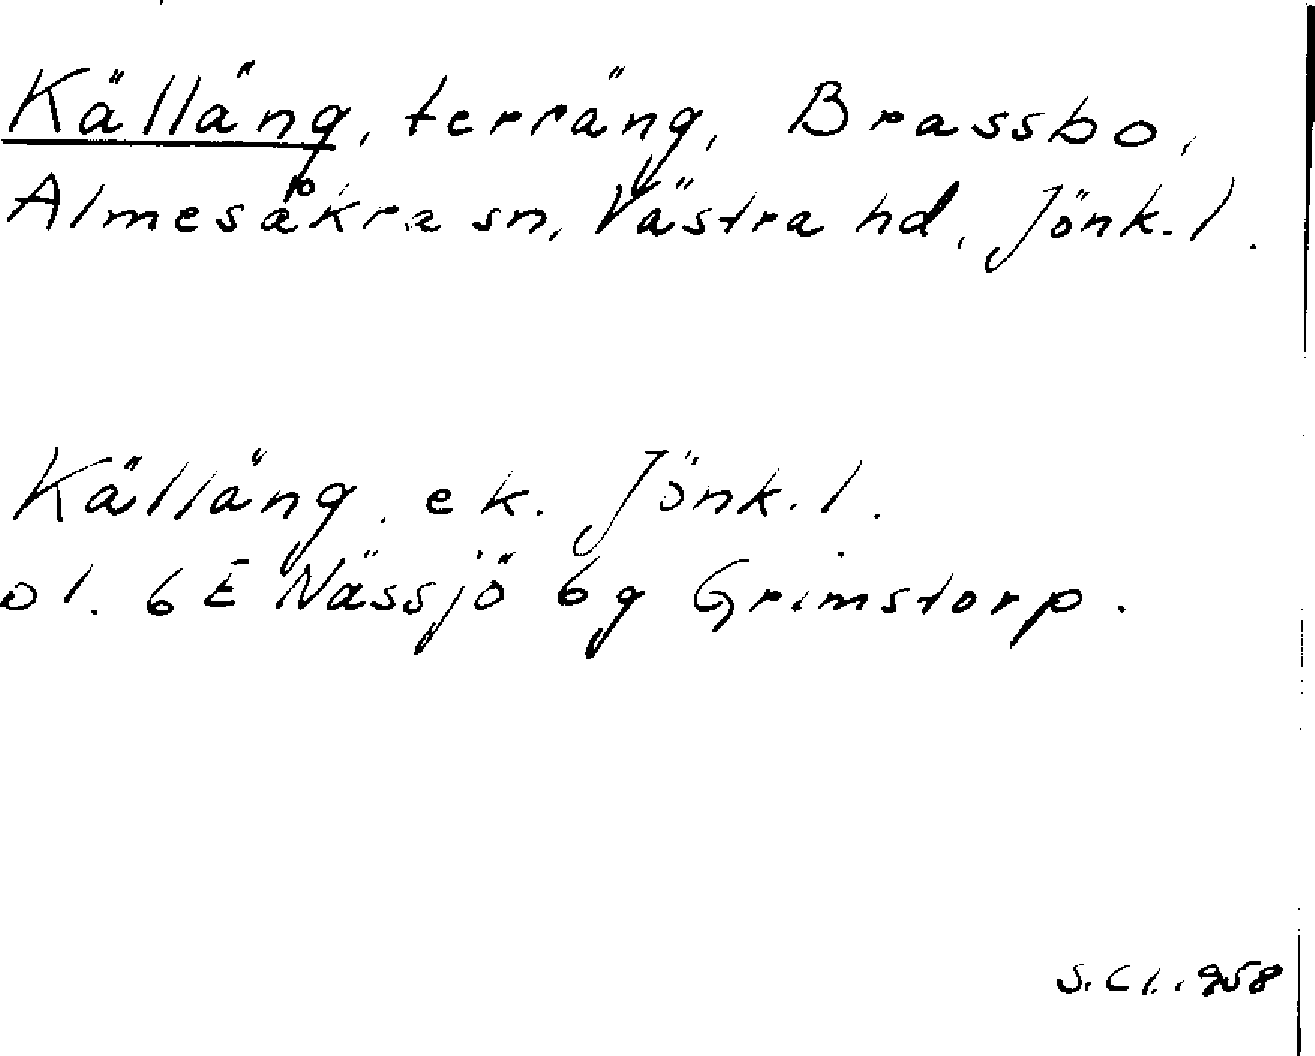 Källäng, terräng, Brassbo,
Almesåkra sn, Västra hd, Jönk. l.
Källäng, ek. Jönk. l.
bl. 6 E Nässjö 6g Grimstorp.
S. Cl. 958